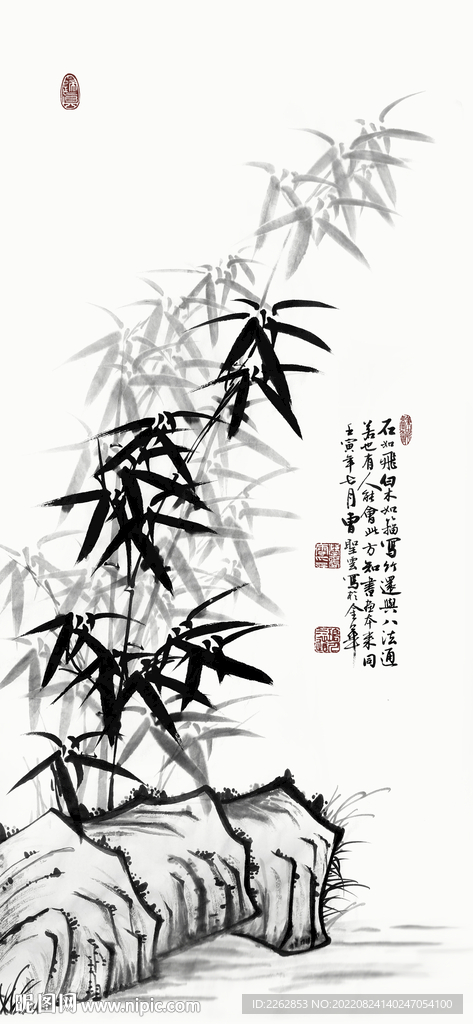 石如飛白木如籀寫竹還與八法通
若也有人能會此方知書畫本來同
壬寅年七月曹聖雲寫於金華
昵图网 www.nipic.com
ID:2262853 NO:20220824140247054100